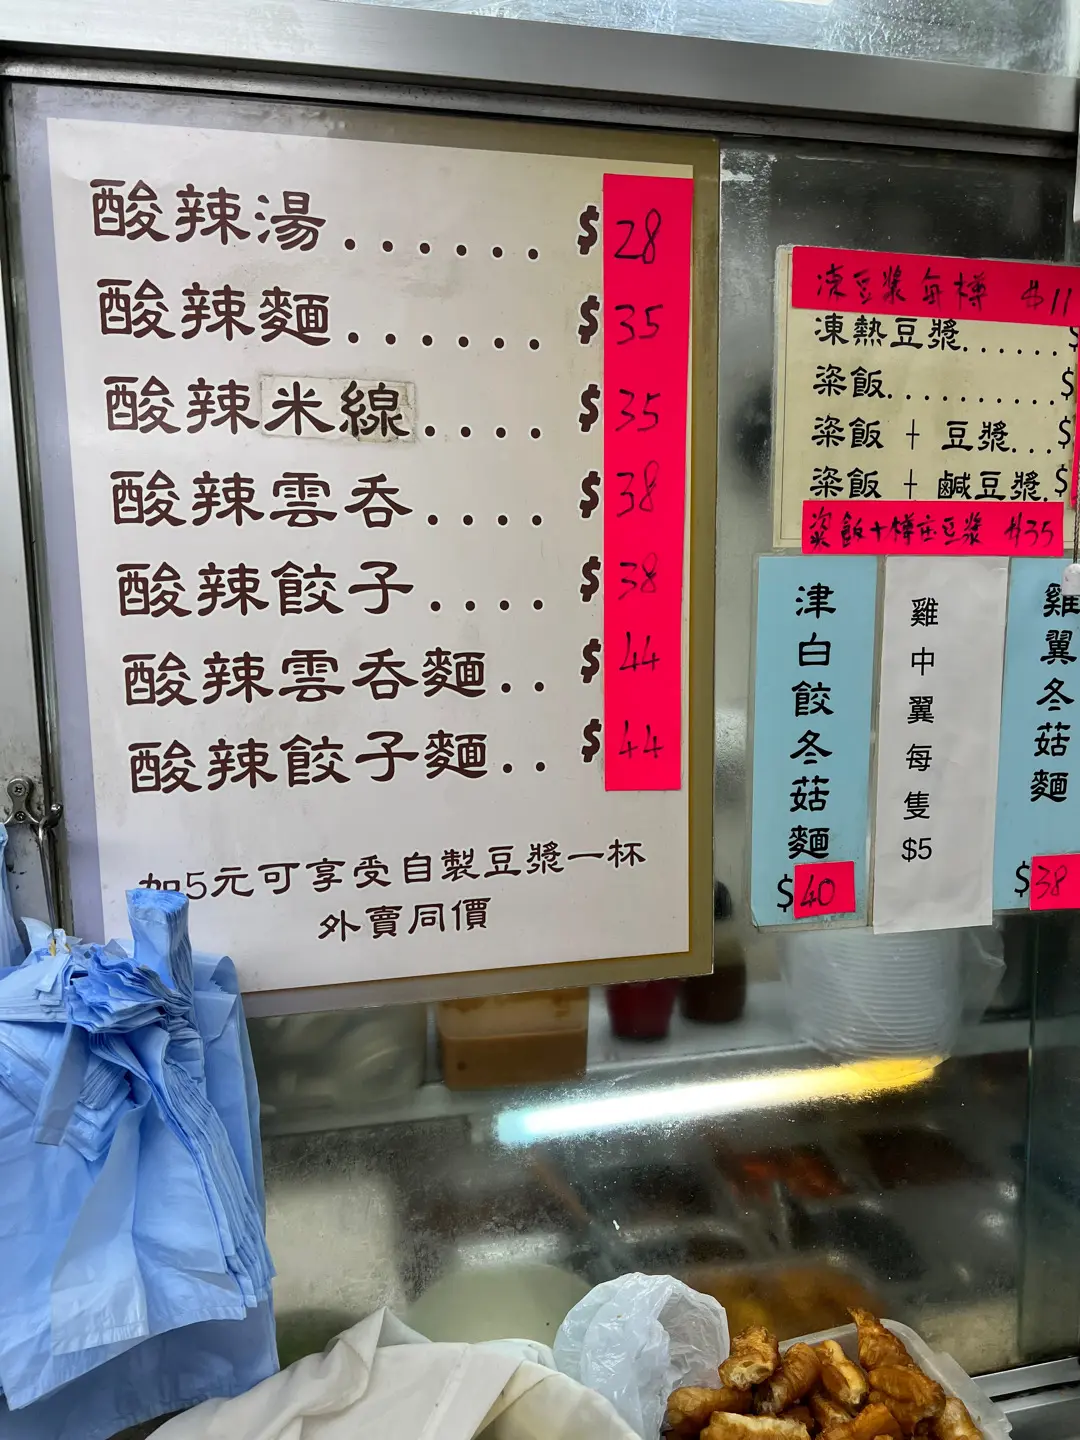 酸辣湯...... $28
酸辣麵...... $35
酸辣米線.... $35
酸辣雲呑.... $38
酸辣餃子.... $38
酸辣雲呑麵.. $44
酸辣餃子麵.. $44
加5元可享受自製豆漿一杯
外賣同價
凍豆漿每樽 $11
凍熱豆漿......$
粢飯..........$
粢飯+豆漿...$
粢飯+鹹豆漿.$
粢飯+樽庄豆漿 $35
津白餃冬菇麵
$40
雞中翼每隻$5
雞翼冬菇麵
$38